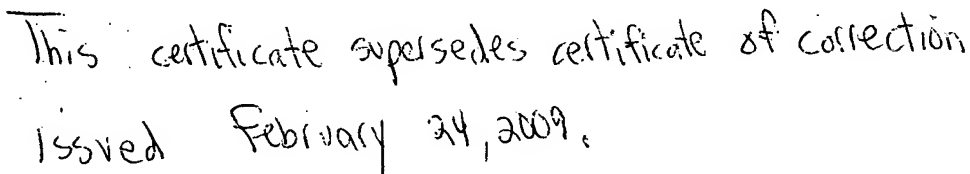 This certificate supersedes certificate of correction
issued February 24, 2009.